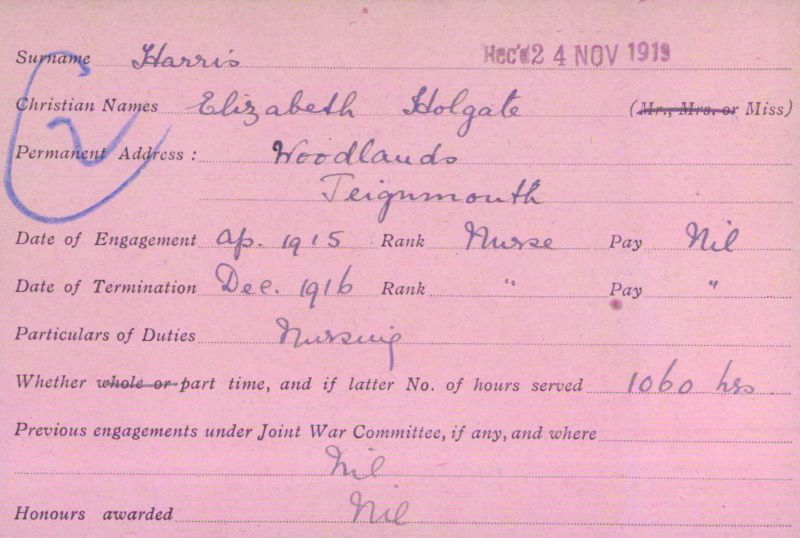 Surname Harris Rec'd 24 NOV 1919
Christian Names Elizabeth Holgate (Mr., Mrs. or Miss)
Permanent Address: Woodlands
Teignmouth
Date of Engagement Ap. 1915 Rank Nurse Pay Nil
Date of Termination Dec. 1916 Rank " Pay "
Particulars of Duties Nursing
Whether whole or part time, and if latter No. of hours served 1060 hrs.
Previous engagements under Joint War Committee, if any, and where
Nil
Honours awarded Nil